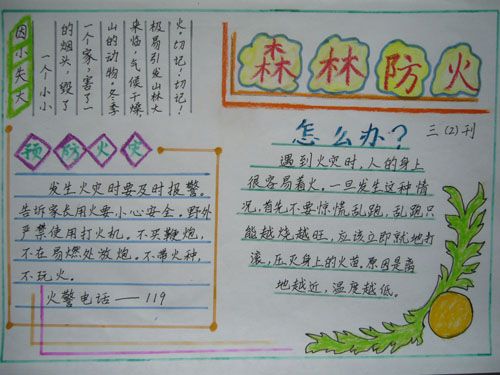 因小失大
一个小小
的烟头,毁了
一个家,害了一
山的动物.冬季
来临,气候干燥
极易引发山林大
火.切记!切记!
森林防火
三(2)刊
预防火灾
发生火灾时要及时报警.
告诉家长用火要小心安全.野外
严禁使用打火机.不买鞭炮,
不在易燃处放炮.不带火种,
不玩火.
火警电话——119
怎么办?
遇到火灾时,人的身上
很容易着火,一旦发生这种情
况,首先不要惊慌乱跑,乱跑只
能越烧越旺,应该立即就地打
滚,压灭身上的火苗.原因是离
地越近,温度越低.